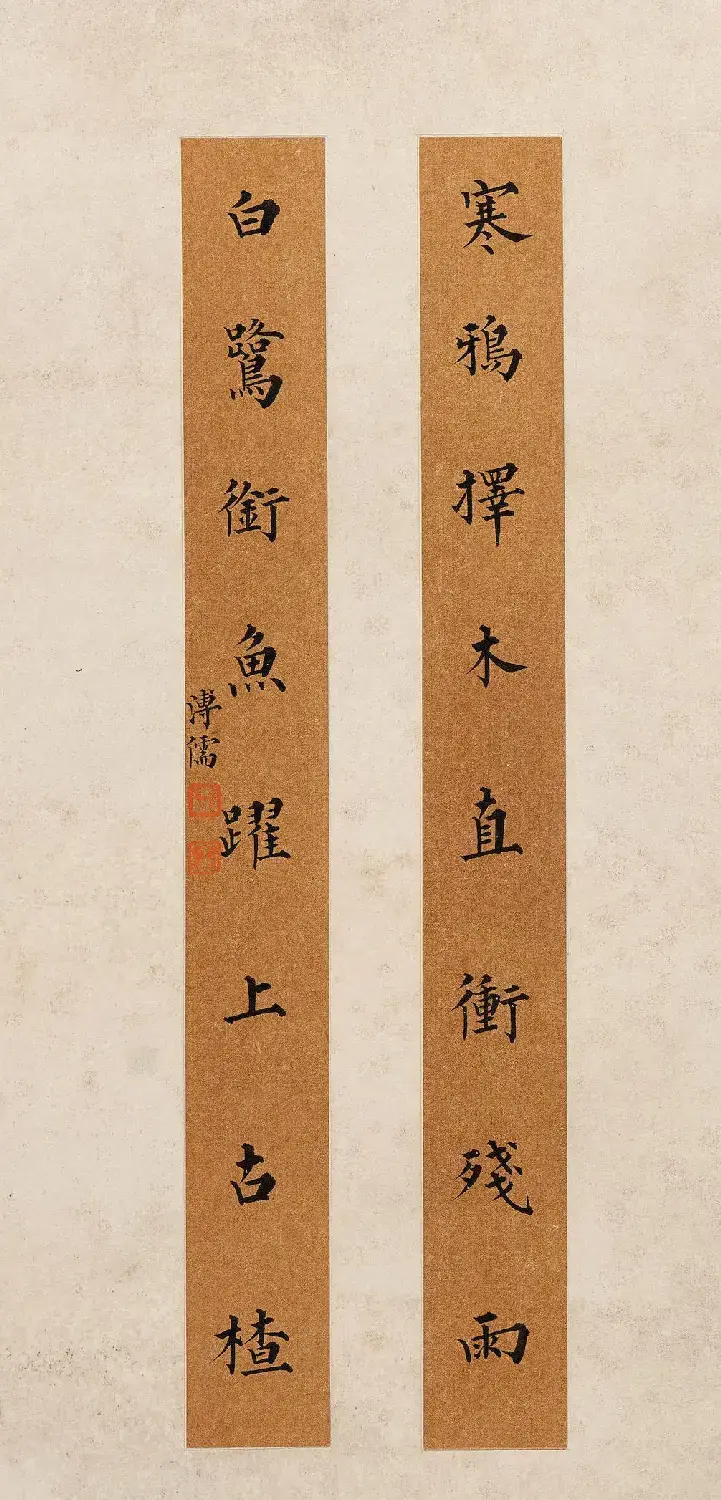 寒鴉擇木直衝殘雨
白鷺銜魚躍上古楂
溥儒